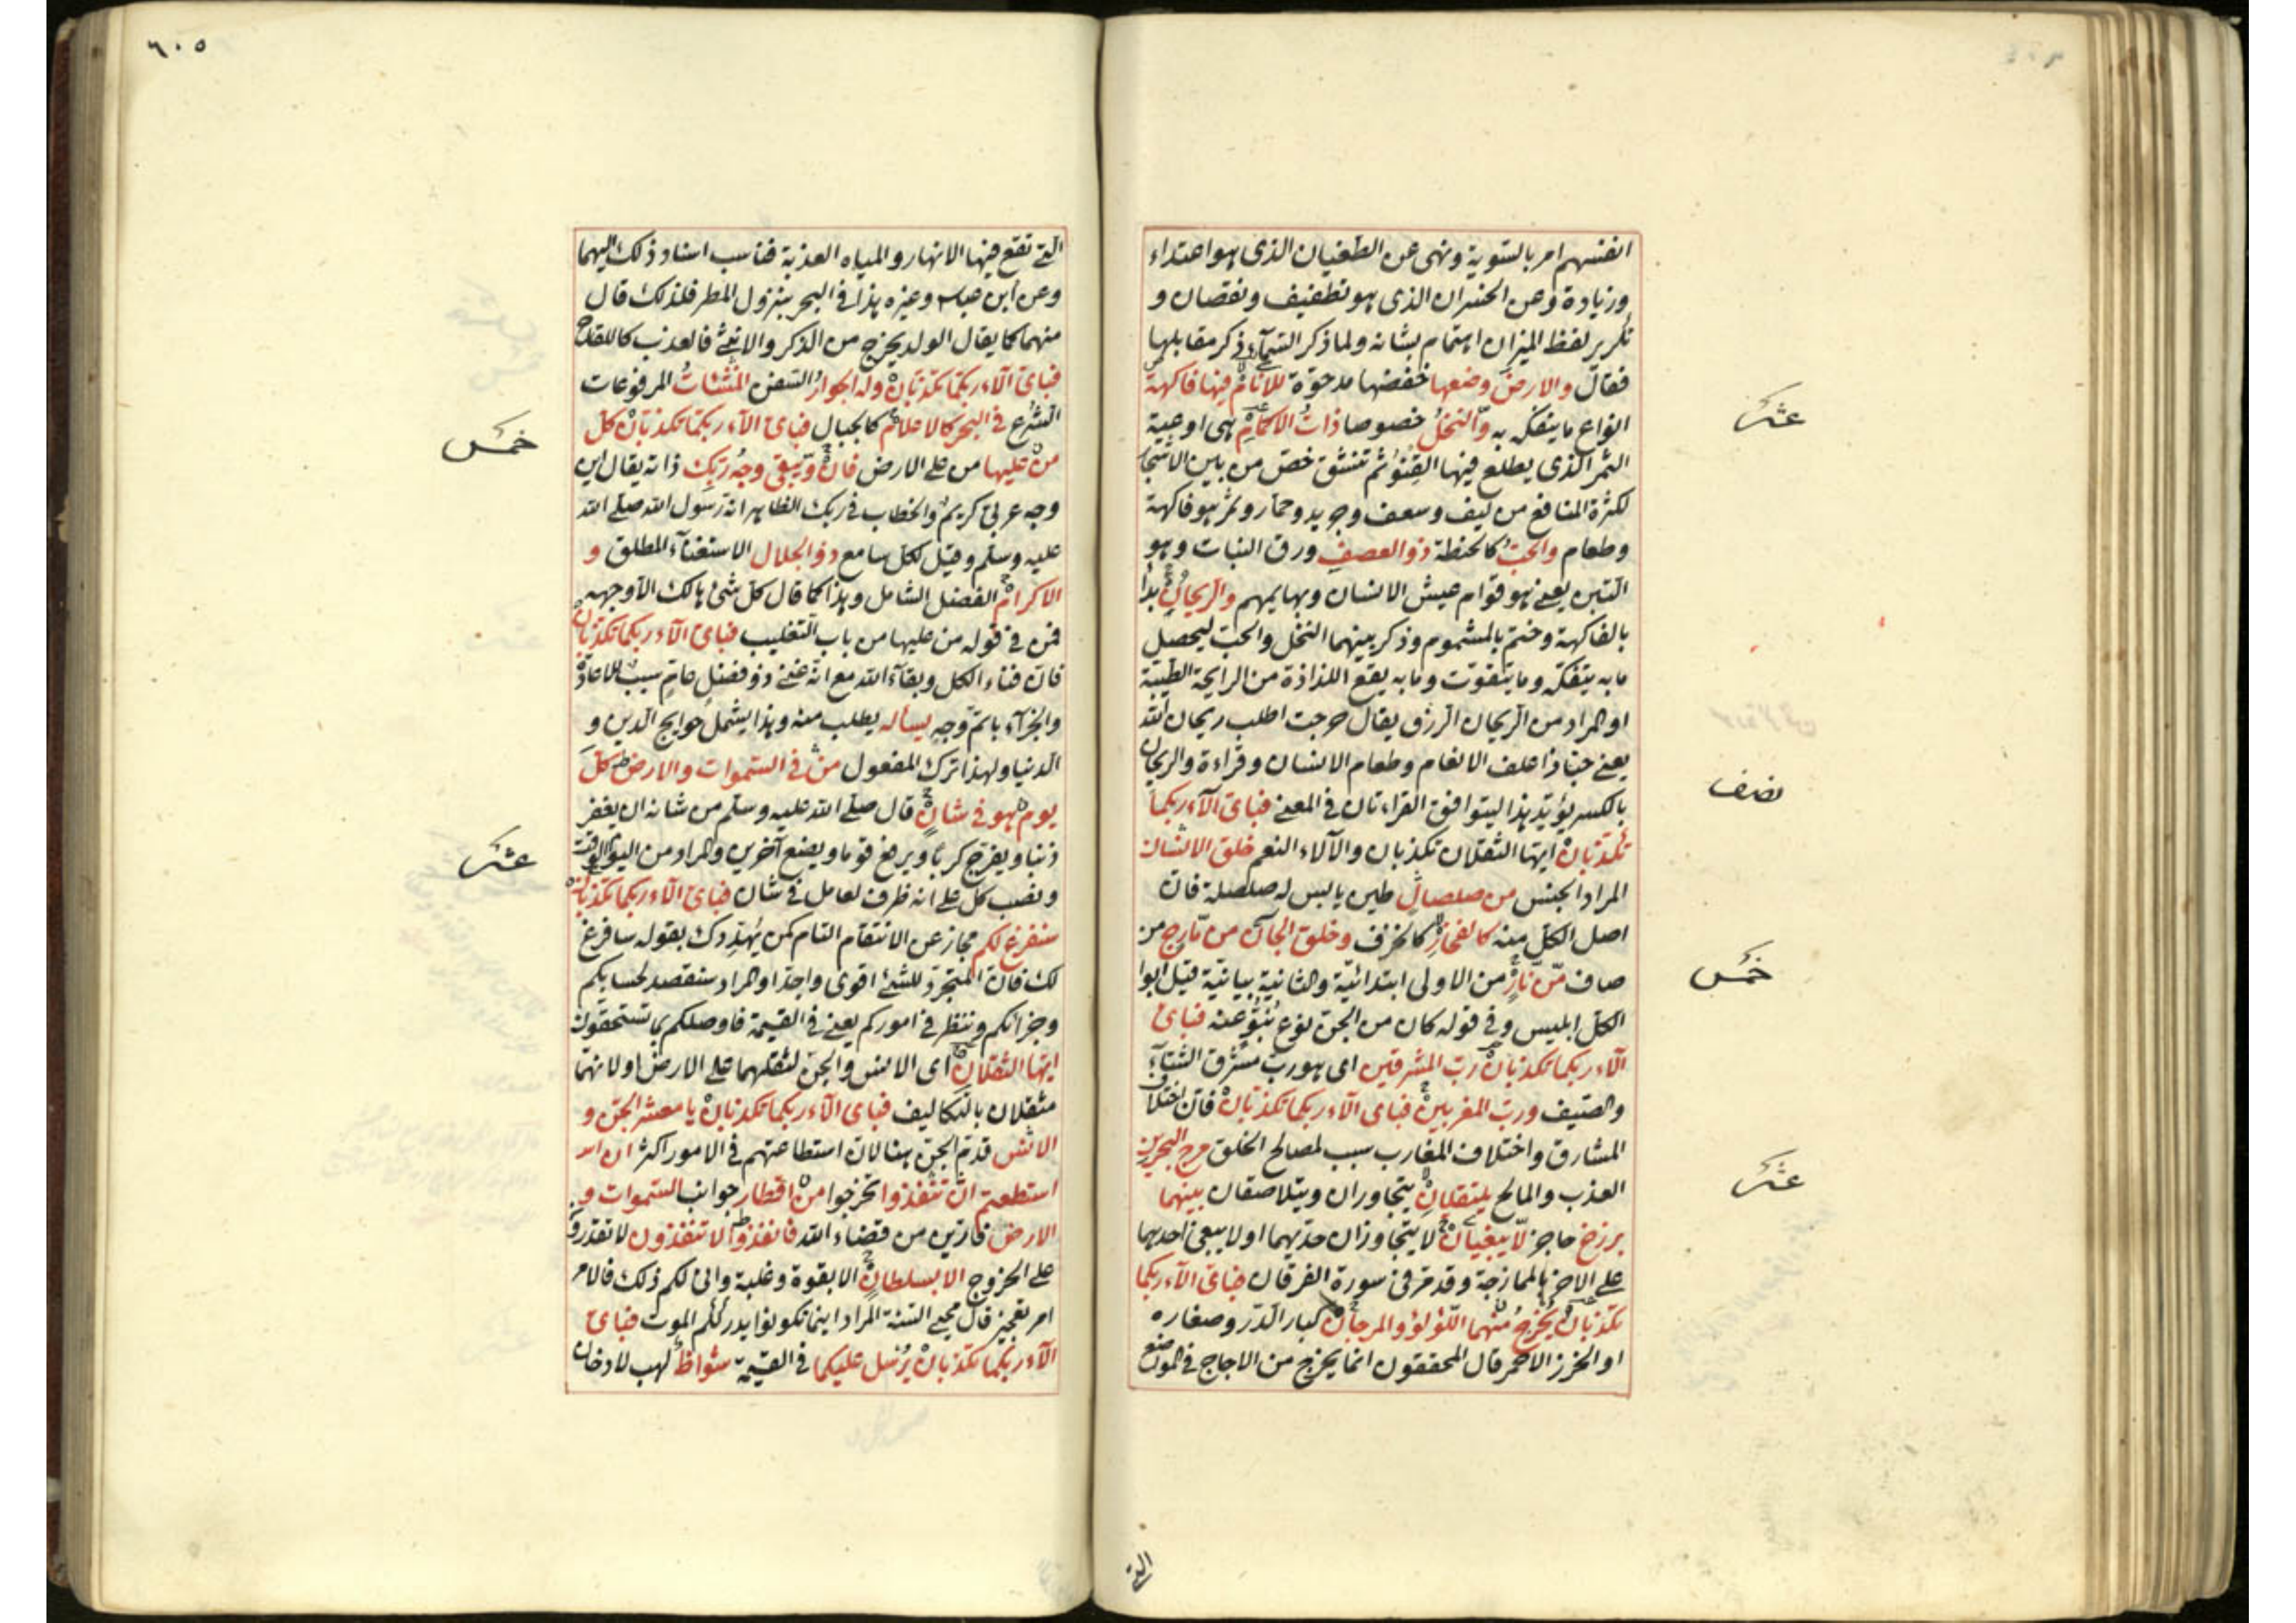 انفسهم امر بالتسوية ونهى عن الطغيان الذى هو اعتداء
وزيادة وعن الخسران الذى هو تطفيف ونقصان و
تكرير لفظ الميزان اهتمام بشانه ولما ذكر السمآء ذكر مقابلها
فقال والارض وضعها خفضها مدحوّة للانام فيها فاكهة
انواع ما يتفكه به والنخل خصوصا ذات الاكمام هى اوعية
الثمر الذى يطلع فيها القنو ثم تنشق خص من بين الاشجار
لكثرة المنافع من ليف وسعف وجريد وجمار وثمر هو فاكهة
وطعام والحب كالحنطة ذو العصف ورق النبات وهو
التبن يعنى هو قوام عيش الانسان وبهايمهم والريحان بدأ
بالفاكهة وختم بالمشموم وذكر بينهما النخل والحب ليحصل
ما به يتفكه وما يتقوت وما به يقع اللذاذة من الرايحة الطيبة
او المراد من الريحان الرزق يقال خرجت اطلب ريحان الله
يعنى حبا ذا علف الانعام وطعام الانسان وقراءة والريحان
بالكسر يؤيد هذا ليتوافق القراءتان فى المعنى فباى الآء ربكما
تكذبان ايها الثقلان تكذبان والآلاء النعم خلق الانسان
المراد الجنس من صلصال طين يابس له صلصلة فان
اصل الكل منه كالفخار كالخزف وخلق الجان من مارج من
صاف من نار من الاولى ابتدائية والثانية بيانية قيل ابوا
الكل ابليس وفى قوله كان من الجن نوع نبو عنه فباى
الآء ربكما تكذبان رب المشرقين اى هو رب مشرق الشتآء
والصيف ورب المغربين فباى الآء ربكما تكذبان فان اختلاف
المشارق واختلاف المغارب سبب لمصالح الخلق مرج البحرين
العذب والمالح يلتقيان يتجاوران ويتلاصقان بينهما
برزخ حاجز لا يبغيان لا يتجاوزان حديهما اولا يبغى احدهما
على الاخر بالممازجة وقد مر فى سورة الفرقان فباى الآء ربكما
تكذبان يخرج منهما اللؤلؤ والمرجان كبار الدر وصغاره
او الخرز الاحمر قال المحققون انما يخرج من الاجاج فى المواضع
التى
عشر
نصف
خمس
عشر
٦٠٥
التى تقع فيها الانهار والمياه العذبة فناسب اسناد ذلك اليهما
وعن ابن عباس وغيره هذا فى البحر بنزول المطر فلذلك قال
منهما كما يقال الولد يخرج من الذكر والانثى فالعذب كاللقاح
فباى الآء ربكما تكذبان وله الجوار السفن المنشئات المرفوعات
الشرع فى البحر كالاعلام كالجبال فباى الآء ربكما تكذبان كل
من عليها من على الارض فان ويبقى وجه ربك ذاته يقال اين
وجه عربى كريم والخطاب فى ربك الظاهر انه رسول الله صلى الله
عليه وسلم وقيل لكل سامع ذو الجلال الاستغنآء المطلق و
الاكرام الفضل الشامل وهذا كما قال كل شئ هالك الا وجهه
فمن فى قوله من عليها من باب التغليب فباى الآء ربكما تكذبان
فان فناء الكل وبقآء الله مع انه غنى ذو فضل عام سبب للاعادة
والجزآء باتم وجه يسأله يطلب منه وهذا يشمل حوايج الدين و
الدنيا ولهذا ترك المفعول من فى السموات والارض كل
يوم هو فى شان قال صلى الله عليه وسلم من شانه ان يغفر
ذنبا ويفرج كربا ويرفع قوما ويضع آخرين والمراد من اليوم الوقت
ونصب كل على انه ظرف لعامل فى شان فباى الآء ربكما تكذبان
سنفرغ لكم مجاز عن الانتقام التام كمن يهددك بقوله سافرغ
لك فان المتجرد للشئ اقوى واجد او المراد سنقصد لحسابكم
وجزائكم وننظر فى اموركم يعنى فى القيمة فاوصلكم بما تستحقون
ايها الثقلان اى الانس والجن لثقلهما على الارض اولانهما
مثقلان بالتكاليف فباى الآء ربكما تكذبان يا معشر الجن و
الانس قدم الجن هنا لان استطاعتهم فى الامور اكثر ان
استطعتم ان تنفذوا تخرجوا من اقطار جوانب السموات و
الارض فارين من قضاء الله فانفذوا لا تنفذون لا تقدرون
على الخروج الا بسلطان الا بقوة وغلبة وانى لكم ذلك فالامر
امر تعجيز قال محيى السنة المراد اينما تكونوا يدرككم الموت فباى
الآء ربكما تكذبان يرسل عليكما فى القيمة شواظ لهب لا دخان
خمس
عشر